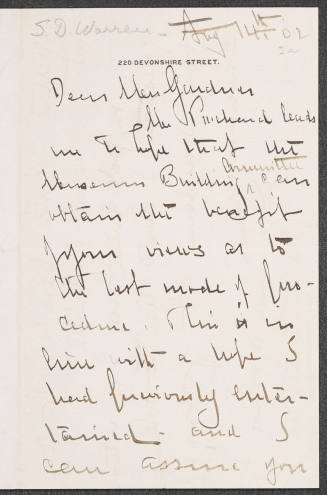 S. D. Warren - Aug 14th 02
220 DEVONSHIRE STREET.
Dear Mrs Gardner
Mr Prichard leads
me to hope that the
Committee
Museum Building can
obtain the benefit
of your views as to
the best mode of pro-
cedure. This is in
line with a hope I
had previously enter-
tained - and I
can assure you